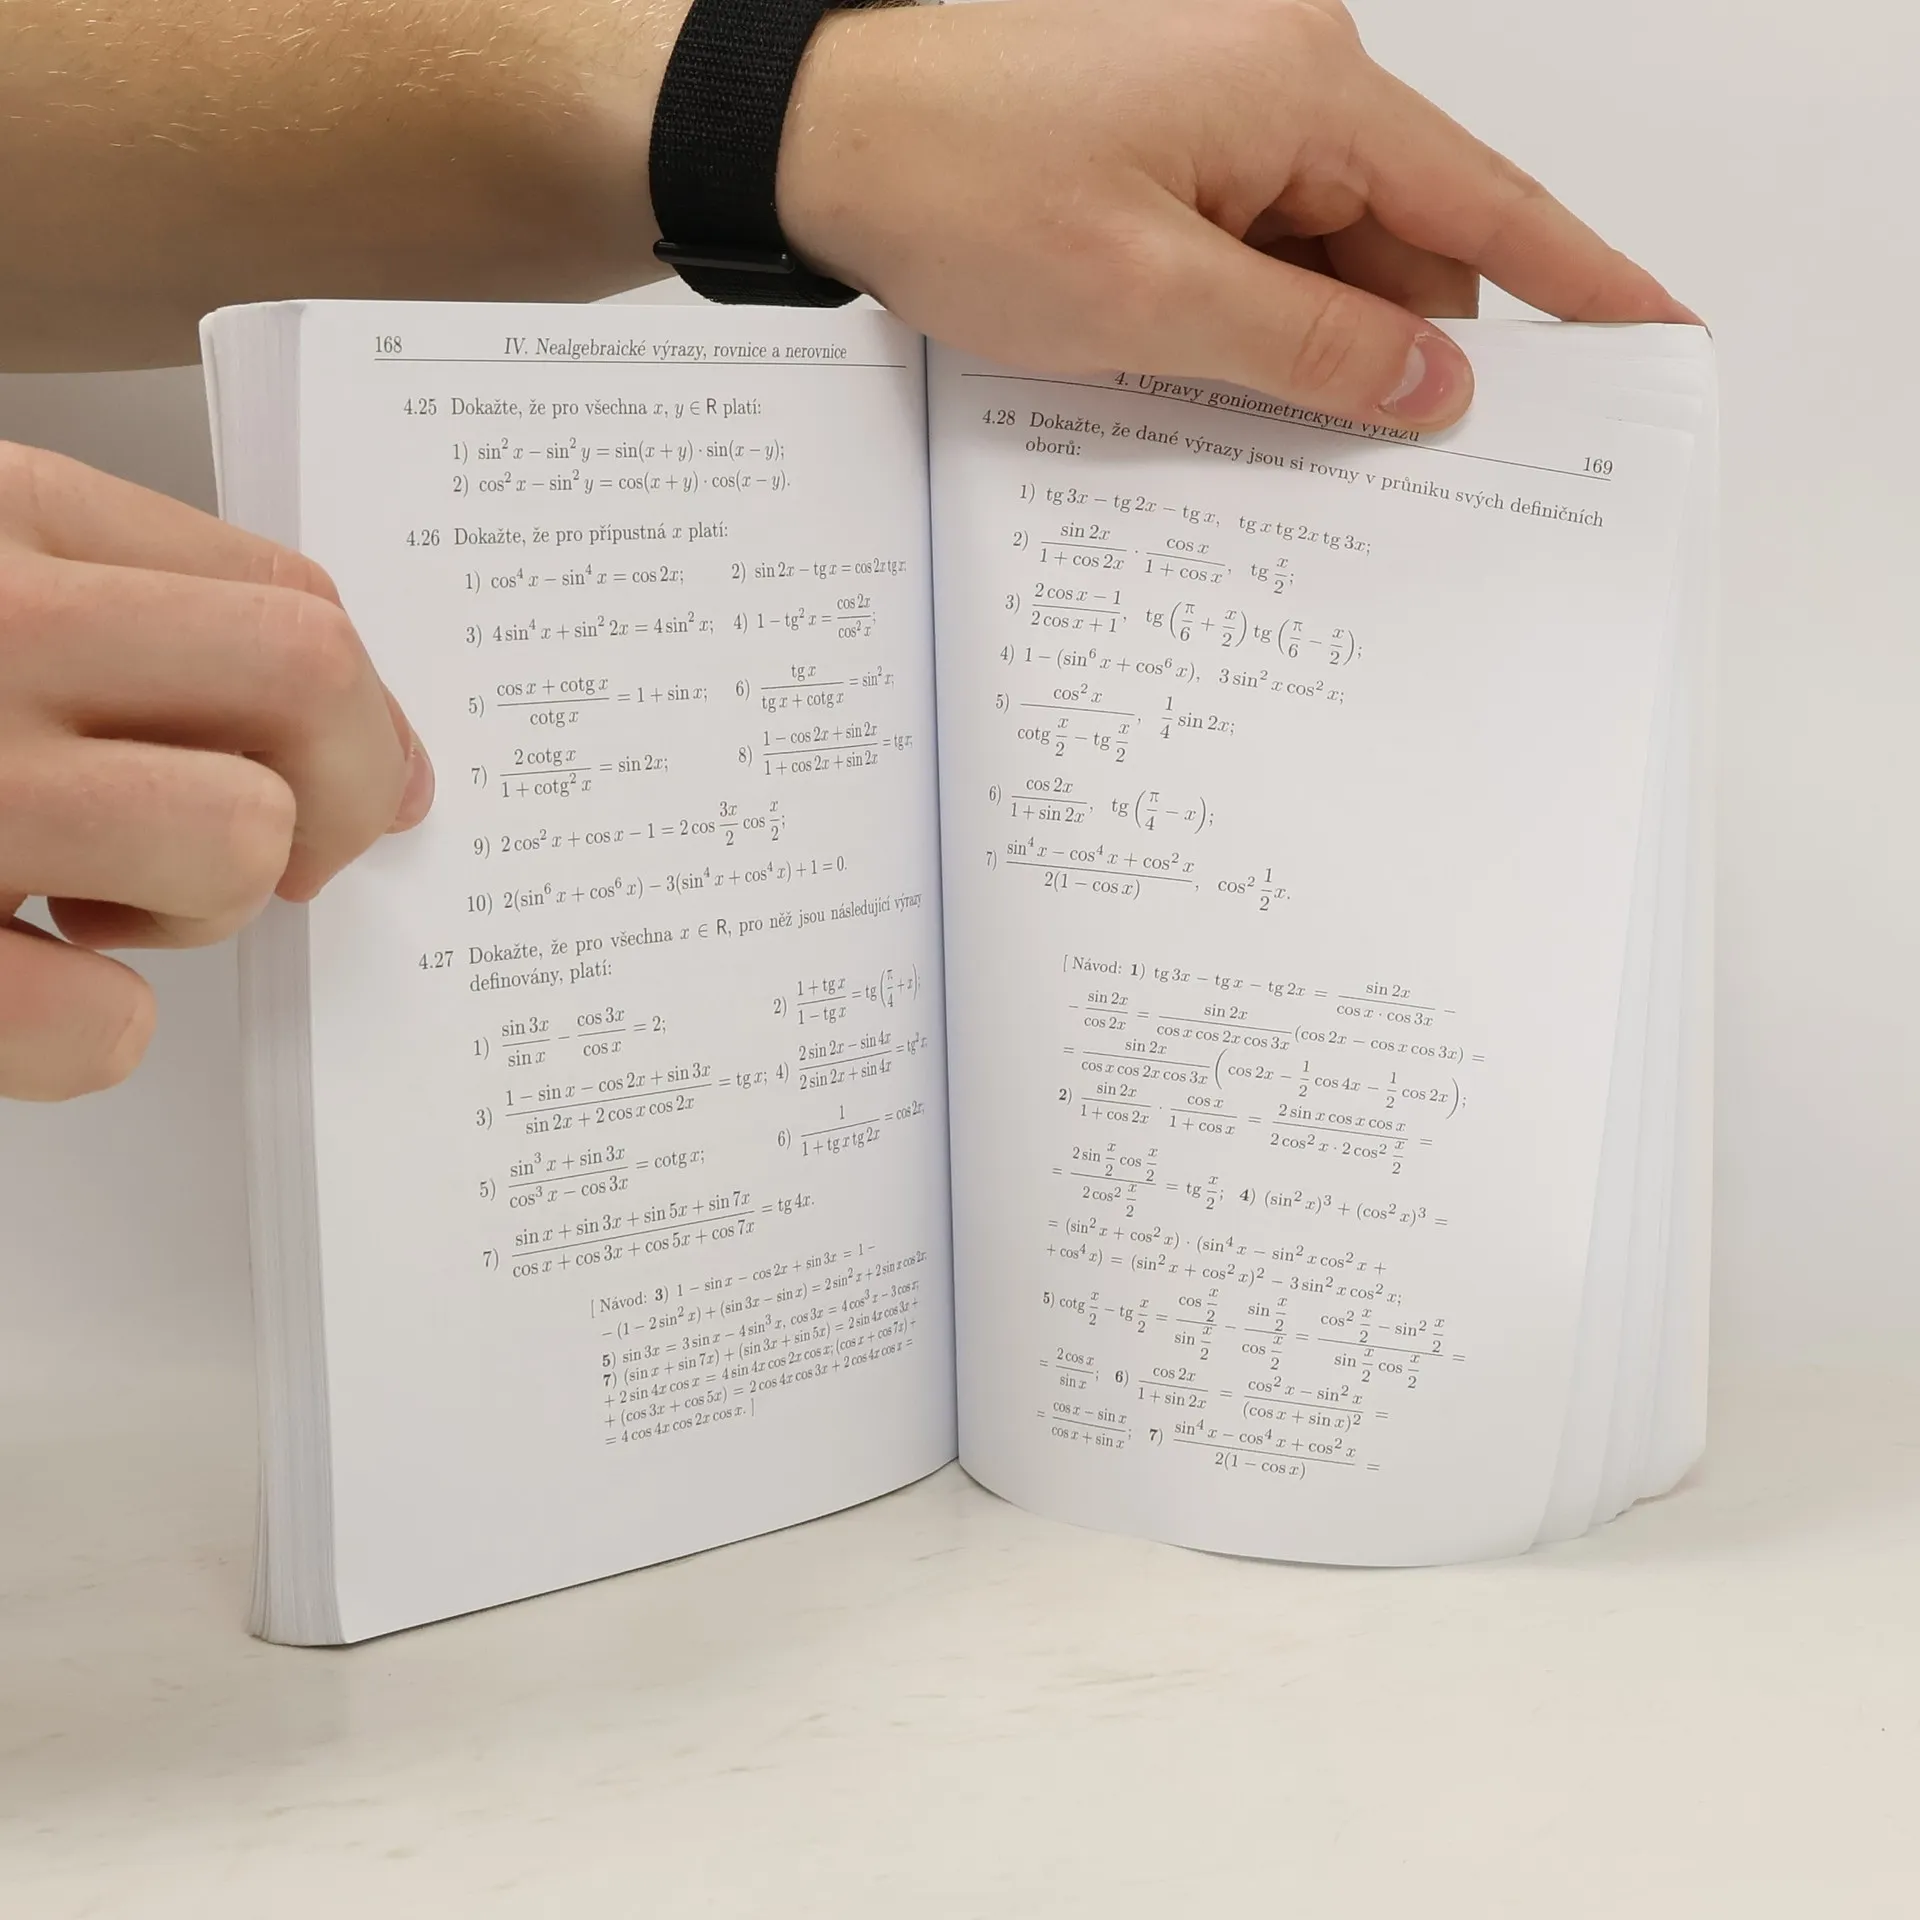 168 IV. Nealgebraické výrazy, rovnice a nerovnice
4.25 Dokažte, že pro všechna x, y ∈ R platí:
1) sin² x − sin² y = sin(x + y) · sin(x − y);
2) cos² x − sin² y = cos(x + y) · cos(x − y).
4.26 Dokažte, že pro přípustná x platí:
1) cos⁴ x − sin⁴ x = cos 2x; 2) sin 2x − tg x = cos 2x tg x;
3) 4 sin⁴ x + sin² 2x = 4 sin² x; 4) 1 − tg² x = cos 2x / cos² x;
5) (cos x + cotg x) / cotg x = 1 + sin x; 6) tg x / (tg x + cotg x) = sin² x;
7) 2 cotg x / (1 + cotg² x) = sin 2x; 8) (1 − cos 2x + sin 2x) / (1 + cos 2x + sin 2x) = tg x;
9) 2 cos² x + cos x − 1 = 2 cos 3x/2 cos x/2;
10) 2(sin⁶ x + cos⁶ x) − 3(sin⁴ x + cos⁴ x) + 1 = 0.
4.27 Dokažte, že pro všechna x ∈ R, pro něž jsou následující výrazy
definovány, platí:
1) sin 3x / sin x − cos 3x / cos x = 2; 2) (1 + tg x) / (1 − tg x) = tg (π/4 + x);
3) (1 − sin x − cos 2x + sin 3x) / (sin 2x + 2 cos x cos 2x) = tg x; 4) (2 sin 2x − sin 4x) / (2 sin 2x + sin 4x) = tg² x;
5) (sin³ x + sin 3x) / (cos³ x − cos 3x) = cotg x; 6) 1 / (1 + tg x tg 2x) = cos 2x;
7) (sin x + sin 3x + sin 5x + sin 7x) / (cos x + cos 3x + cos 5x + cos 7x) = tg 4x.
[ Návod: 3) 1 − sin x − cos 2x + sin 3x = 1 −
− (1 − 2 sin² x) + (sin 3x − sin x) = 2 sin² x + 2 sin x cos 2x;
5) sin 3x = 3 sin x − 4 sin³ x, cos 3x = 4 cos³ x − 3 cos x;
7) (sin x + sin 7x) + (sin 3x + sin 5x) = 2 sin 4x cos 3x +
+ 2 sin 4x cos x = 4 sin 4x cos 2x cos x; (cos x + cos 7x) +
+ (cos 3x + cos 5x) = 2 cos 4x cos 3x + 2 cos 4x cos x =
= 4 cos 4x cos 2x cos x. ]
4. Úpravy goniometrických výrazů 169
4.28 Dokažte, že dané výrazy jsou si rovny v průniku svých definičních
oborů:
1) tg 3x − tg 2x − tg x, tg x tg 2x tg 3x;
2) sin 2x / (1 + cos 2x) · cos x / (1 + cos x), tg x/2;
3) (2 cos x − 1) / (2 cos x + 1), tg (π/6 + x/2) tg (π/6 − x/2);
4) 1 − (sin⁶ x + cos⁶ x), 3 sin² x cos² x;
5) cos² x / (cotg x/2 − tg x/2), 1/4 sin 2x;
6) cos 2x / (1 + sin 2x), tg (π/4 − x);
7) (sin⁴ x − cos⁴ x + cos² x) / 2(1 − cos x), cos² 1/2 x.
[ Návod: 1) tg 3x − tg x − tg 2x = sin 2x / (cos x · cos 3x) −
− sin 2x / cos 2x = sin 2x / (cos x cos 2x cos 3x) (cos 2x − cos x cos 3x) =
= sin 2x / (cos x cos 2x cos 3x) (cos 2x − 1/2 cos 4x − 1/2 cos 2x);
2) sin 2x / (1 + cos 2x) · cos x / (1 + cos x) = 2 sin x cos x cos x / (2 cos² x · 2 cos² x/2) =
= 2 sin x/2 cos x/2 / (2 cos² x/2) = tg x/2; 4) (sin² x)³ + (cos² x)³ =
= (sin² x + cos² x) · (sin⁴ x − sin² x cos² x +
+ cos⁴ x) = (sin² x + cos² x)² − 3 sin² x cos² x;
5) cotg x/2 − tg x/2 = cos x/2 / sin x/2 − sin x/2 / cos x/2 = (cos² x/2 − sin² x/2) / (sin x/2 cos x/2) =
= 2 cos x / sin x; 6) cos 2x / (1 + sin 2x) = (cos² x − sin² x) / (cos x + sin x)² =
= (cos x − sin x) / (cos x + sin x); 7) (sin⁴ x − cos⁴ x + cos² x) / 2(1 − cos x) =